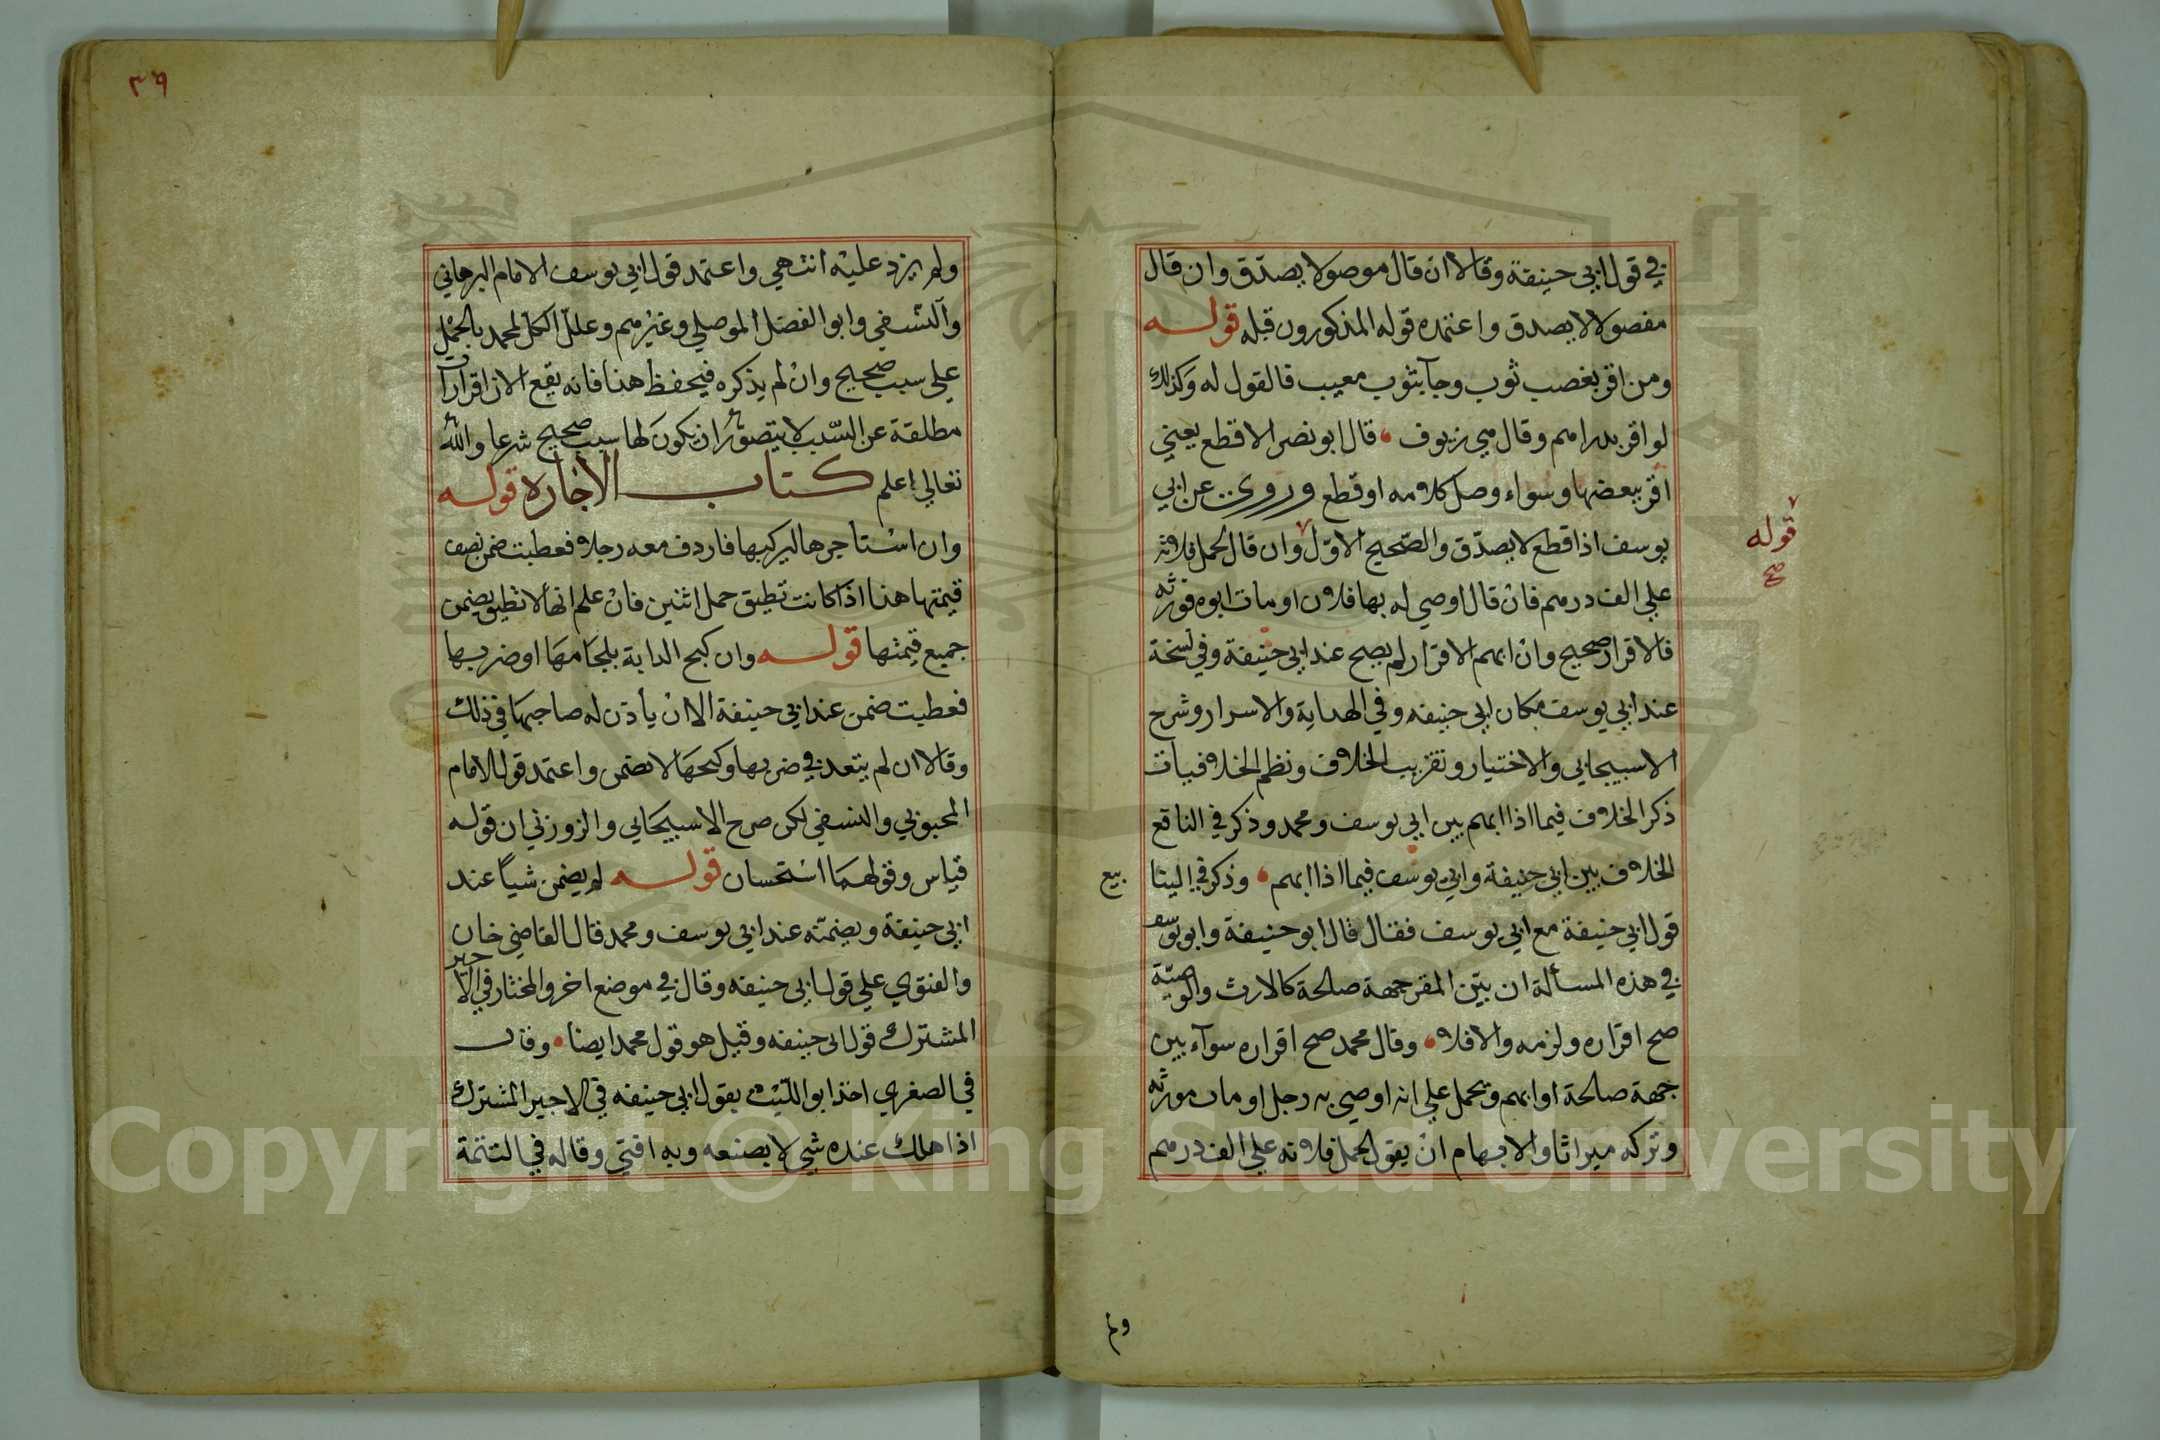 في قول ابي حنيفة وقالا ان قال موصولا يصدق وان قال
مفصولا لا يصدق واعتمده قوله المذكورون قبله قوله
ومن اقر بغصب ثوب وجآ بثوب معيب فالقول له وكذلك
لو اقر بدراهم وقال هي زيوف قال ابو نصر الاقطع يعني
اقر ببعضها وسواء وصل كلامه او قطع وروي عن ابي
يوسف اذا قطع لا يصدق والصحيح الاول وان قال لحمل فلانة
قوله
صح
علي الف درهم فان قال اوصي له بها فلان او مات ابوه فورثه
فالاقرار صحيح وان ابهم الاقرار لم يصح عند ابي حنيفة وفي نسخة
عند ابي يوسف مكان ابي حنيفه وفي الهداية والاسرار وشرح
الاسبيجابي والاختيار وتقريب الخلاف ونظم الخلافيات
ذكر الخلاف فيما اذا ابهم بين ابي يوسف ومحمد وذكر في النافع
الخلاف بين ابي حنيفة وابي يوسف فيما اذا ابهم وذكر في الينا
بيع
قول ابي حنيفة مع ابي يوسف فقال قال ابو حنيفة وابو يوسف
في هذه المسألة ان بين المقر جهة صالحة كالارث والوصية
صح اقراره ولزمه والا فلا وقال محمد صح اقراره سوآء بين
جهة صالحة او ابهم ويحمل علي انه اوصي به رجل او مات مورثه
وتركه ميراثا والابهام ان يقول لحمل فلانه علي الف درهم
ولم
٣٩
ولم يزد عليه انتهي واعتمد قول ابي يوسف الامام البرهاني
والنسفي وابو الفضل الموصلي وغيرهم وعلل الكل لمحمد بالحمل
علي سبب صحيح وان لم يذكره فيحفظ هنا فانه يقع الان اقرارا
مطلقة عن السبب لا يتصور ان يكون لها سبب صحيح شرعا والله
تعالي اعلم كتاب الاجاره قوله
وان استأجرها ليركبها فاردف معه رجلا فعطبت ضمن نصف
قيمتها هذا اذا كانت تطيق حمل اثنين فان علم انها لا تطيق يضمن
جميع قيمتها قوله وان كبح الدابة بلجامها او ضربها
فعطبت ضمن عند ابي حنيفة الا ان يأذن له صاحبها في ذلك
وقالا ان لم يتعد في ضربها وكبحها لا يضمن واعتمد قول الامام
المحبوبي والنسفي لكن صرح الاسبيجابي والزوزني ان قوله
قياس وقولهما استحسان قوله لم يضمن شيأ عند
ابي حنيفة ويضمنه عند ابي يوسف ومحمد قال القاضي خان
والفتوي علي قول ابي حنيفه وقال في موضع اخر والمختار في الاجير
المشترك قول ابي حنيفه وقيل هو قول محمد ايضا وقال
في الصغري اخذ ابو الليث بقول ابي حنيفه في الاجير المشترك
اذا هلك عنده شي لا بصنعه وبه افتي وقاله في التتمة
Copyright © King Saud University